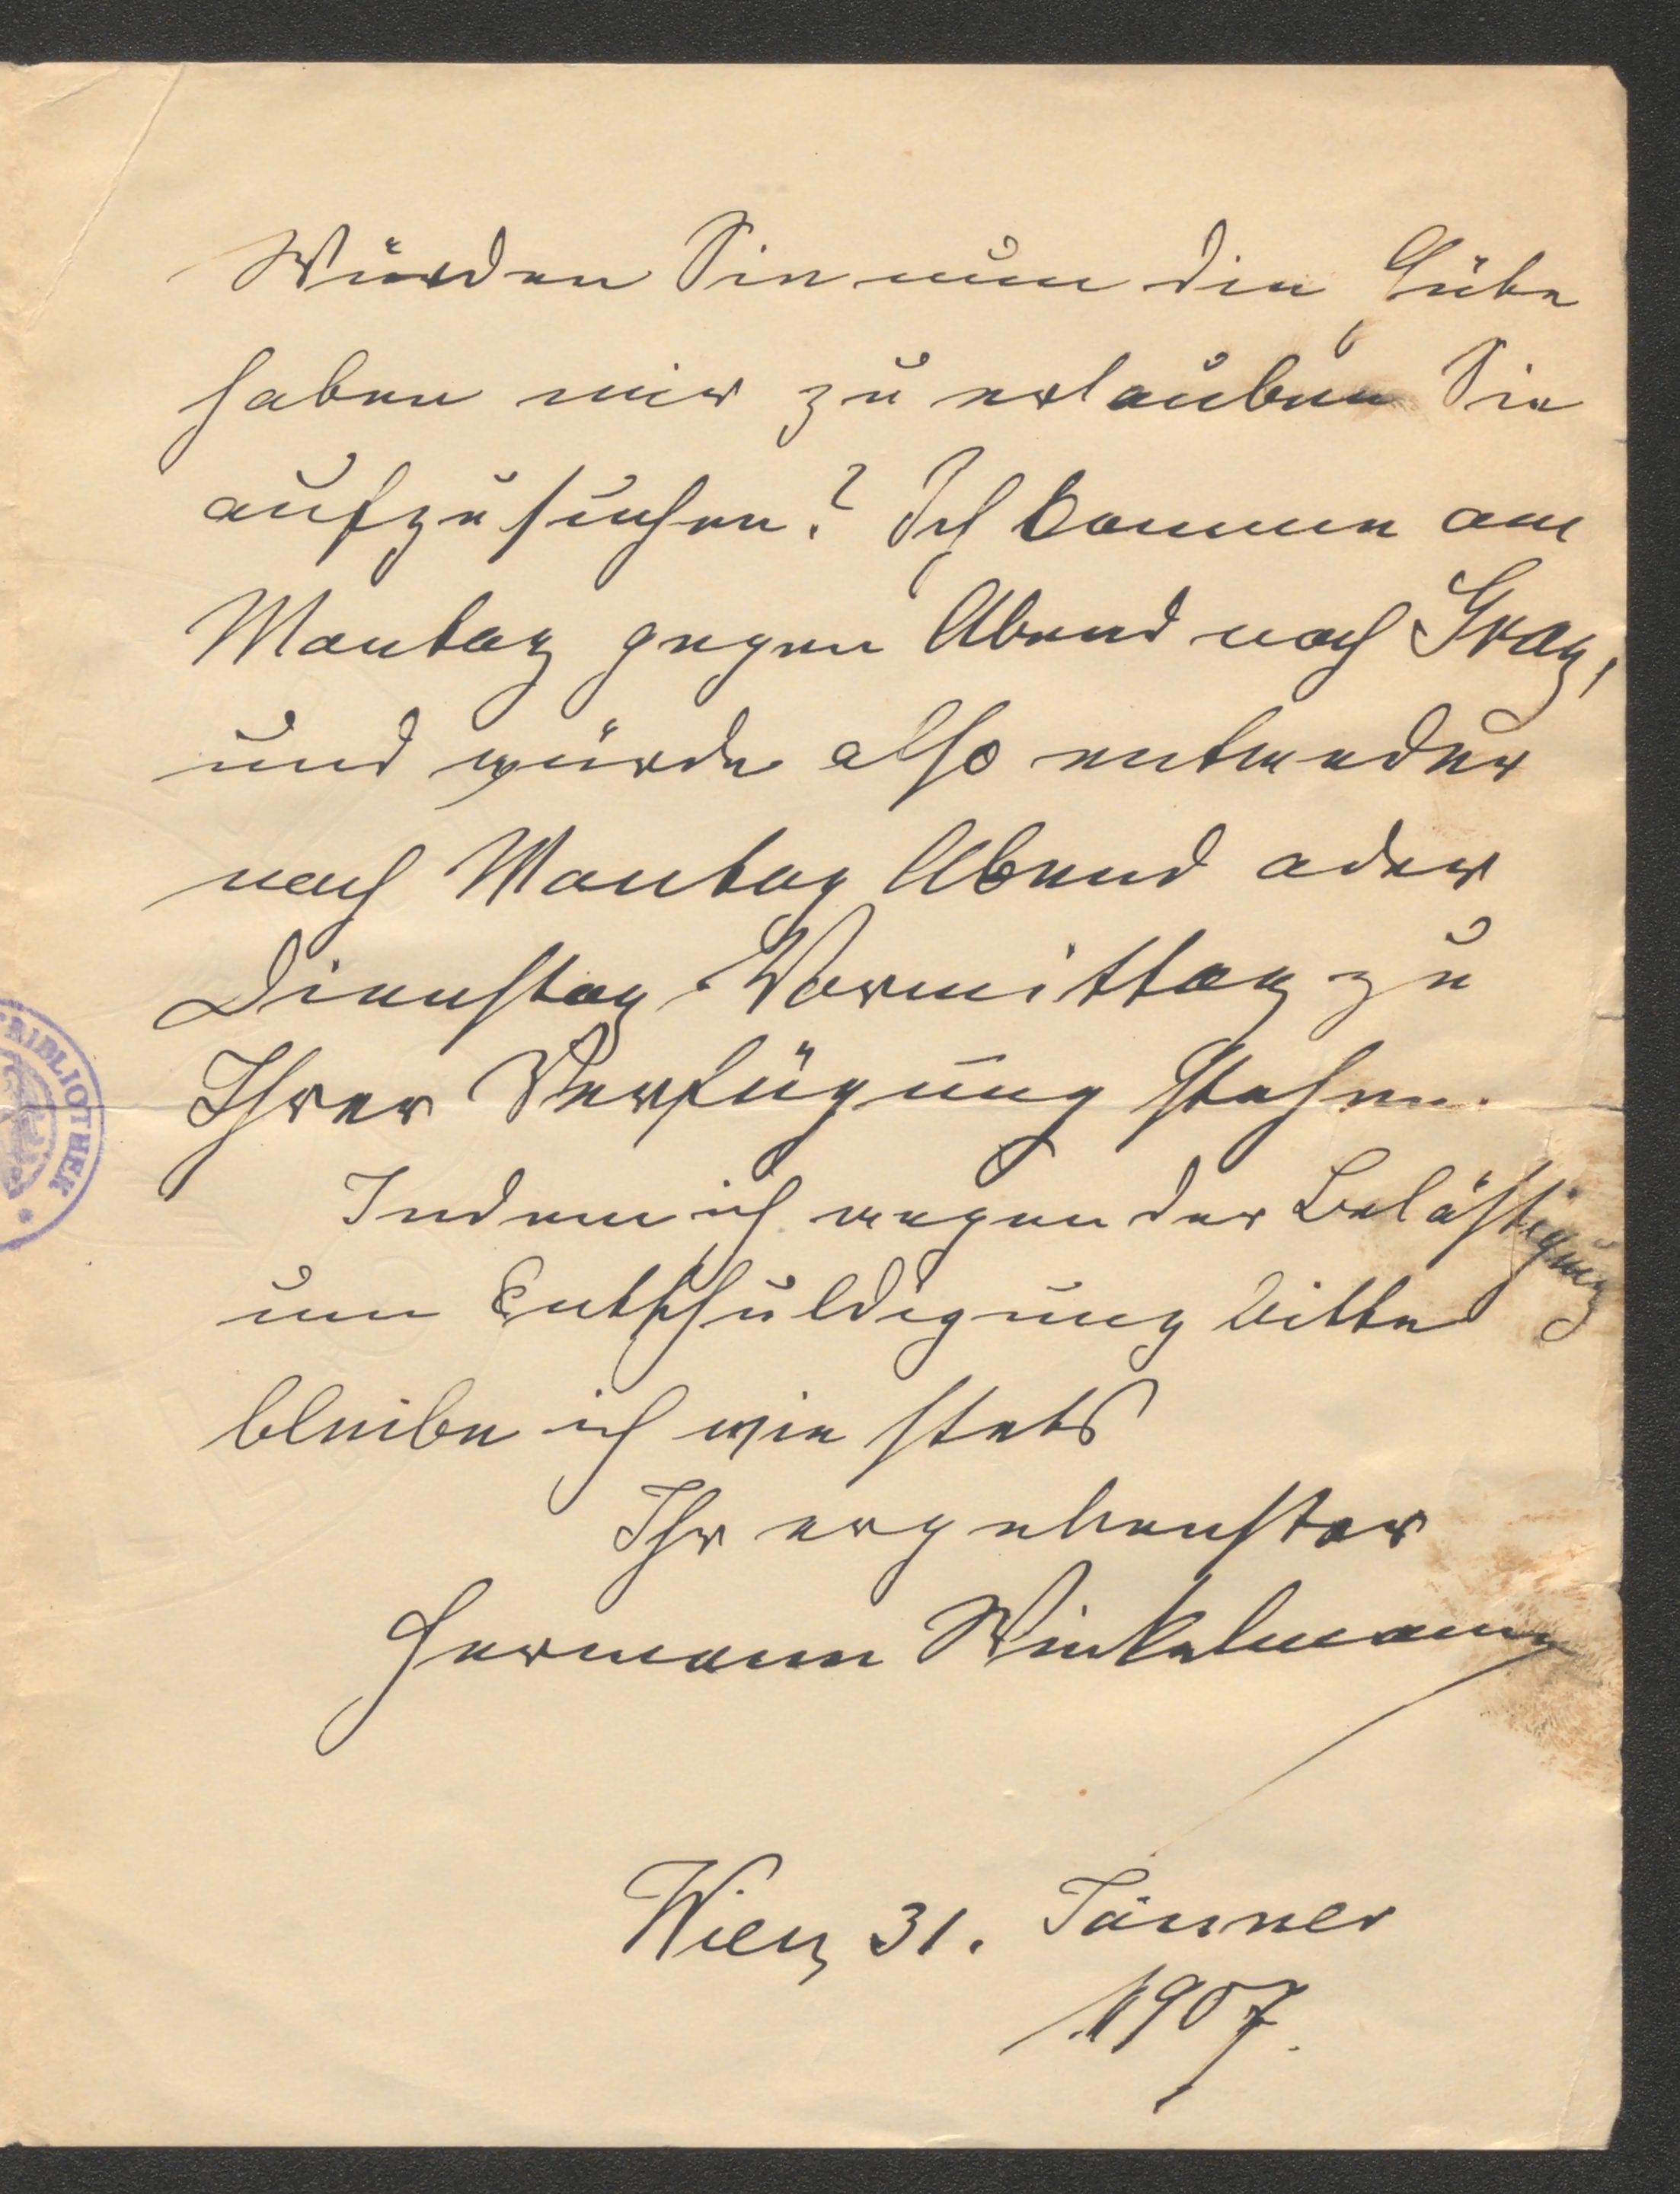 Würden Sie nun die Güte
haben mir zu erlauben Sie
aufzusuchen? Ich komme am
Montag gegen Abend nach Graz,
und würde also entweder
noch Montag Abend oder
Dienstag Vormittag zu
Ihrer Verfügung stehen.
Indem ich wegen der Belästigung
um Entschuldigung bitte
bleibe ich wie stets
Ihr ergebenster
Hermann Winkelmann
Wien, 31. Jänner
1907.
BIBLIOTHEK